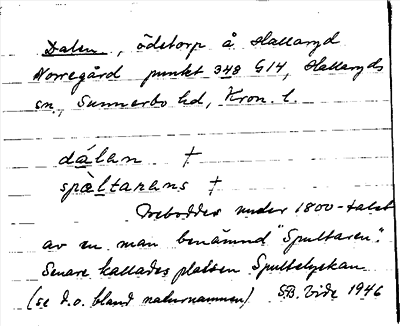 Dalen, ödetorp å Hallaryd
Norregård punkt 348 G14, Hallaryds
sn, Sunnerbo hd, Kron. l.
dálan †
spàltarans †
Beboddes under 1800-talet
av en man benämnd "Spultaren".
Senare kallades platsen Spultelyckan
(se d.o. bland naturnamnen) S.B. Vide 1946